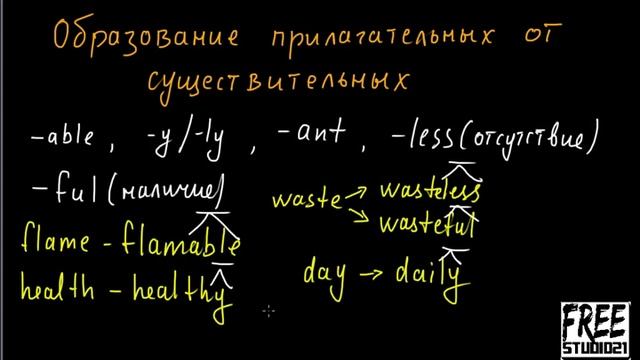 Образование прилагательных от
существительных
-able, -y/-ly, -ant, -less(отсутствие)
-ful(наличие)
waste → wasteless
→ wasteful
flame - flamable
health - healthy
day → daily
FREE
STUDIO21